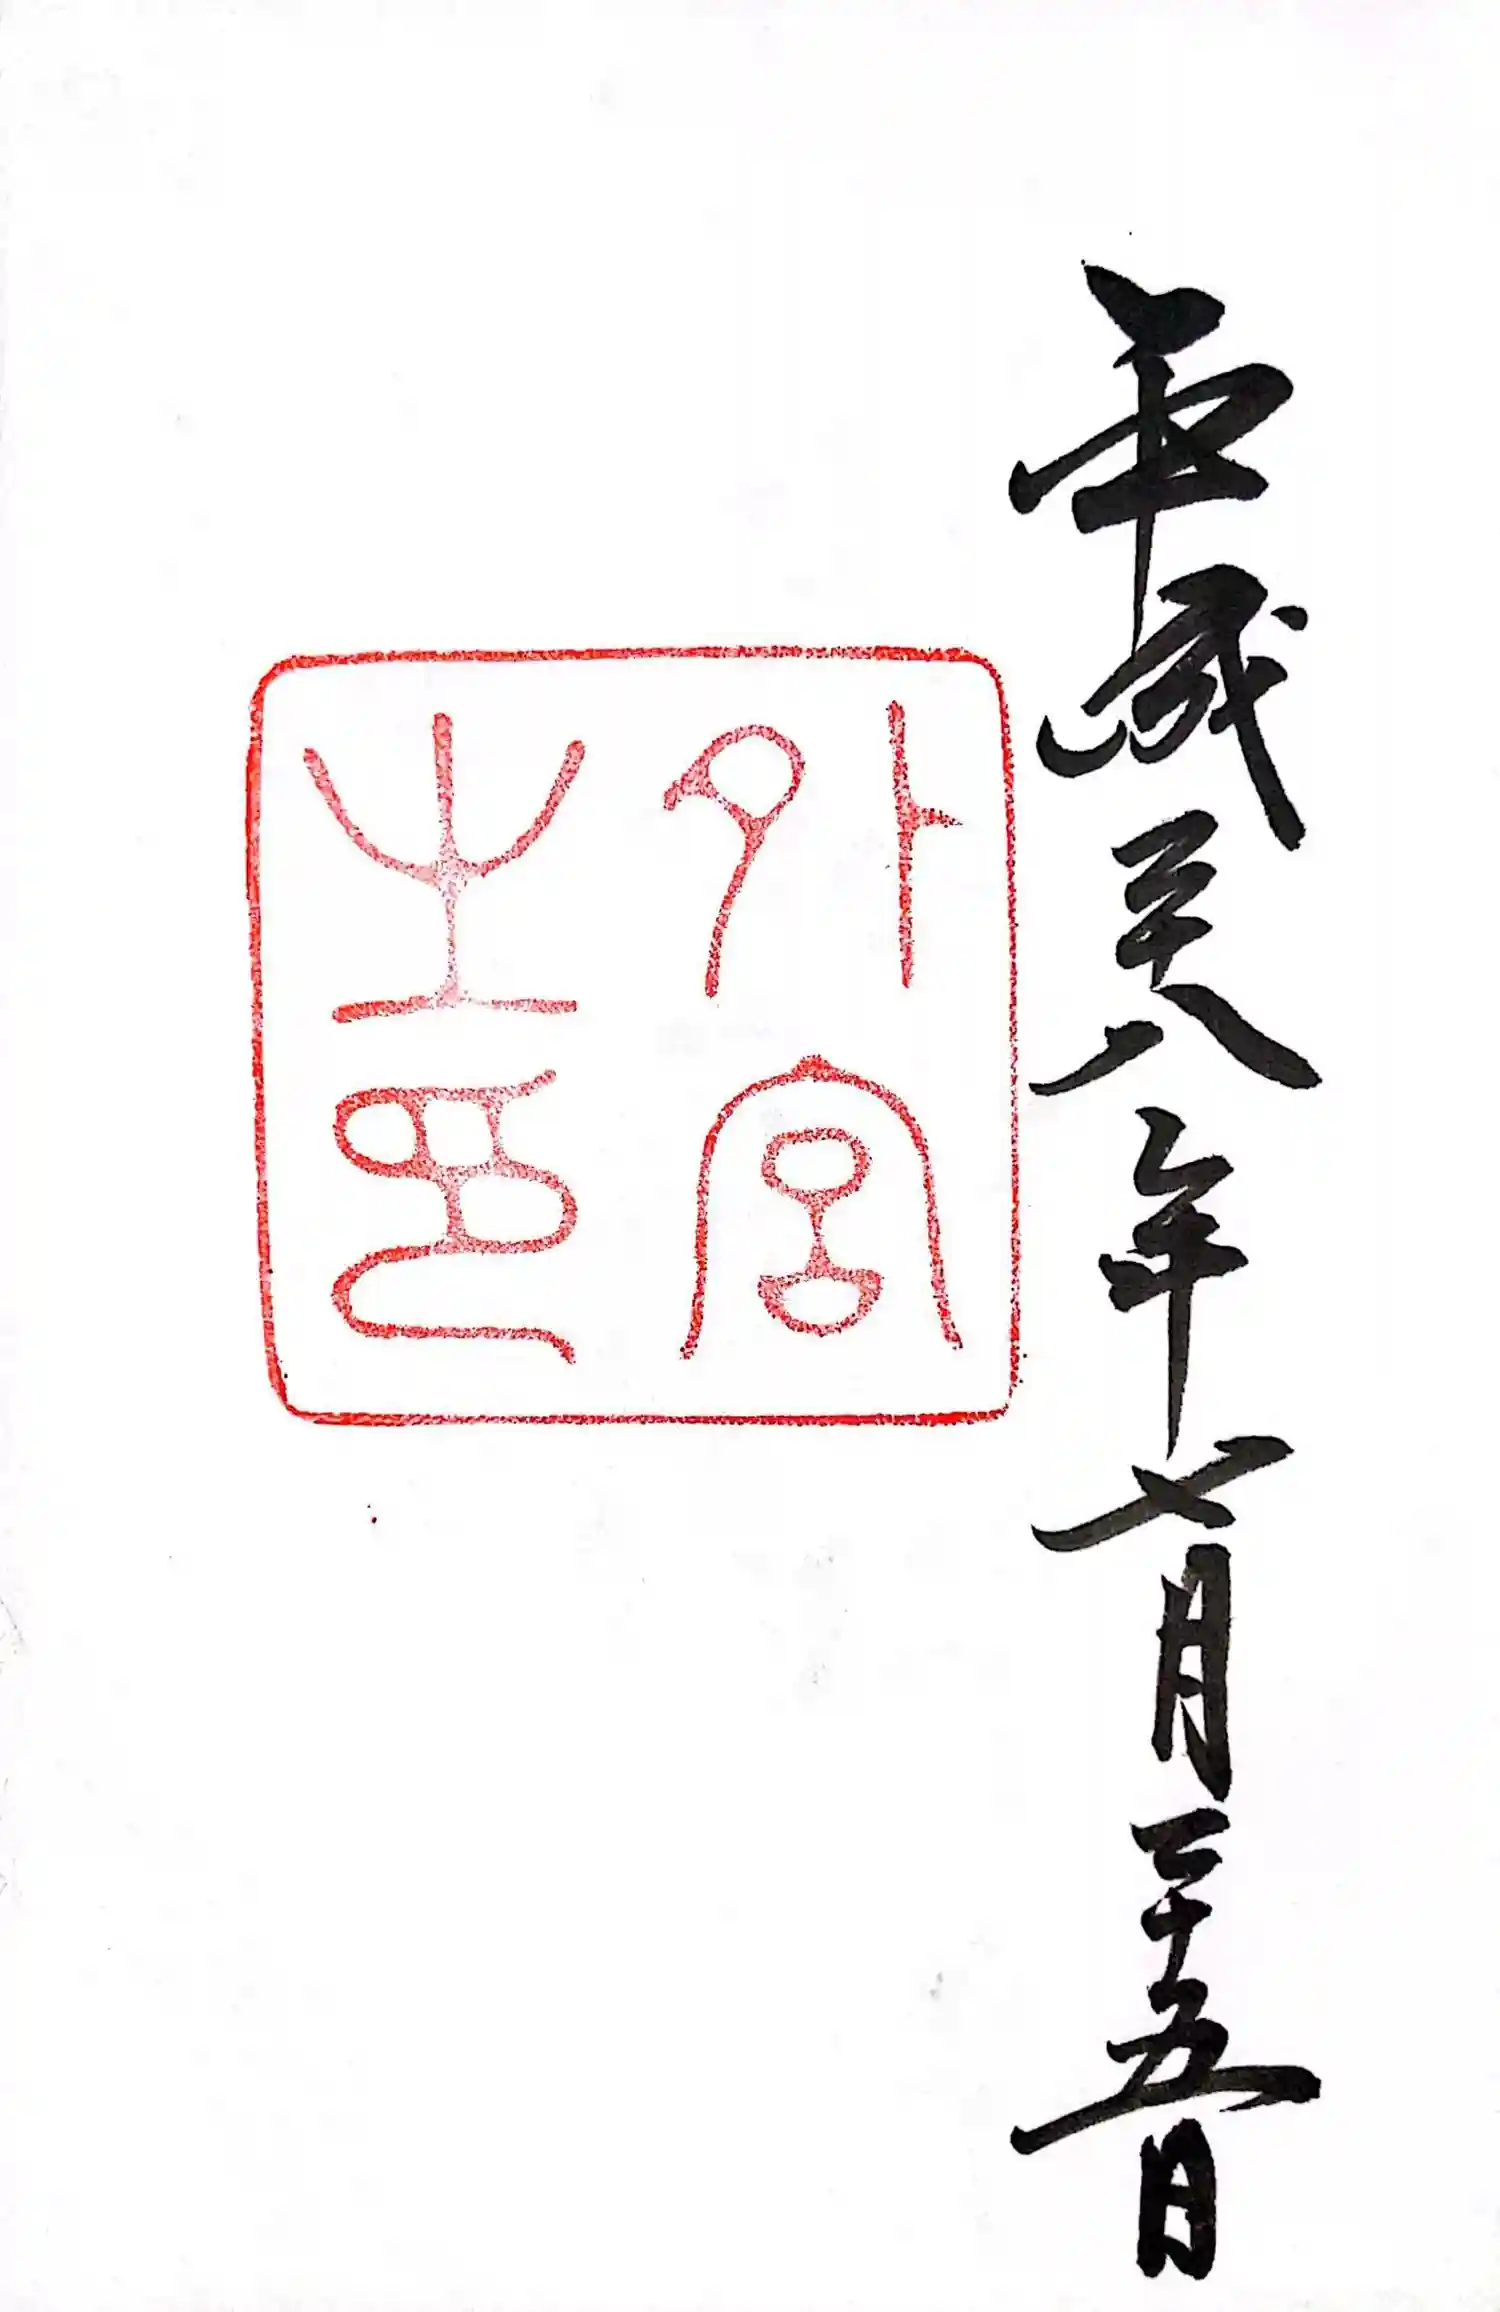 平成二十八年七月二十五日
外宮
之印